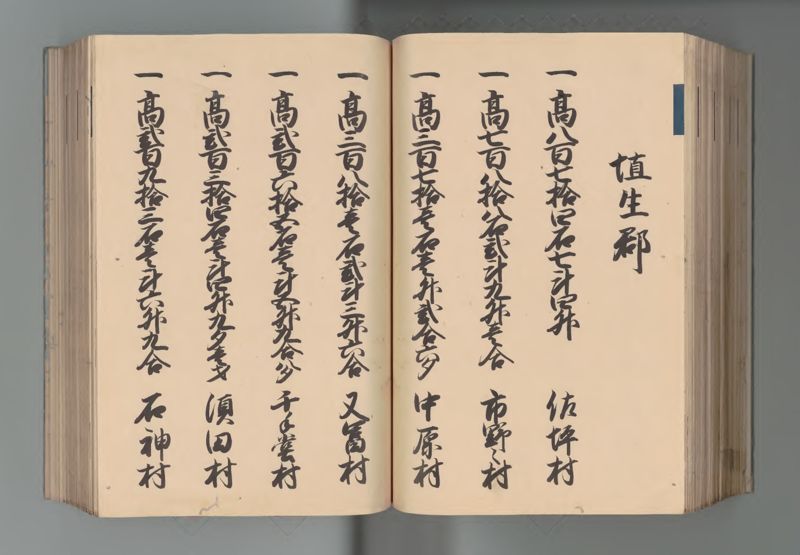 埴生郡
一高八百七拾四石七斗四升 佐坪村
一高七百八拾八石弐斗九升壱合 市野々村
一高三百七拾壱石壱升弐合六夕 中原村
一高三百八拾壱石弐斗三升六合 又冨村
一高弐百六拾五石壱斗五升九合 千手堂村
一高弐百三拾四石壱斗四升九夕壱才 須田村
一高弐百九拾三石壱斗六升九合 石神村